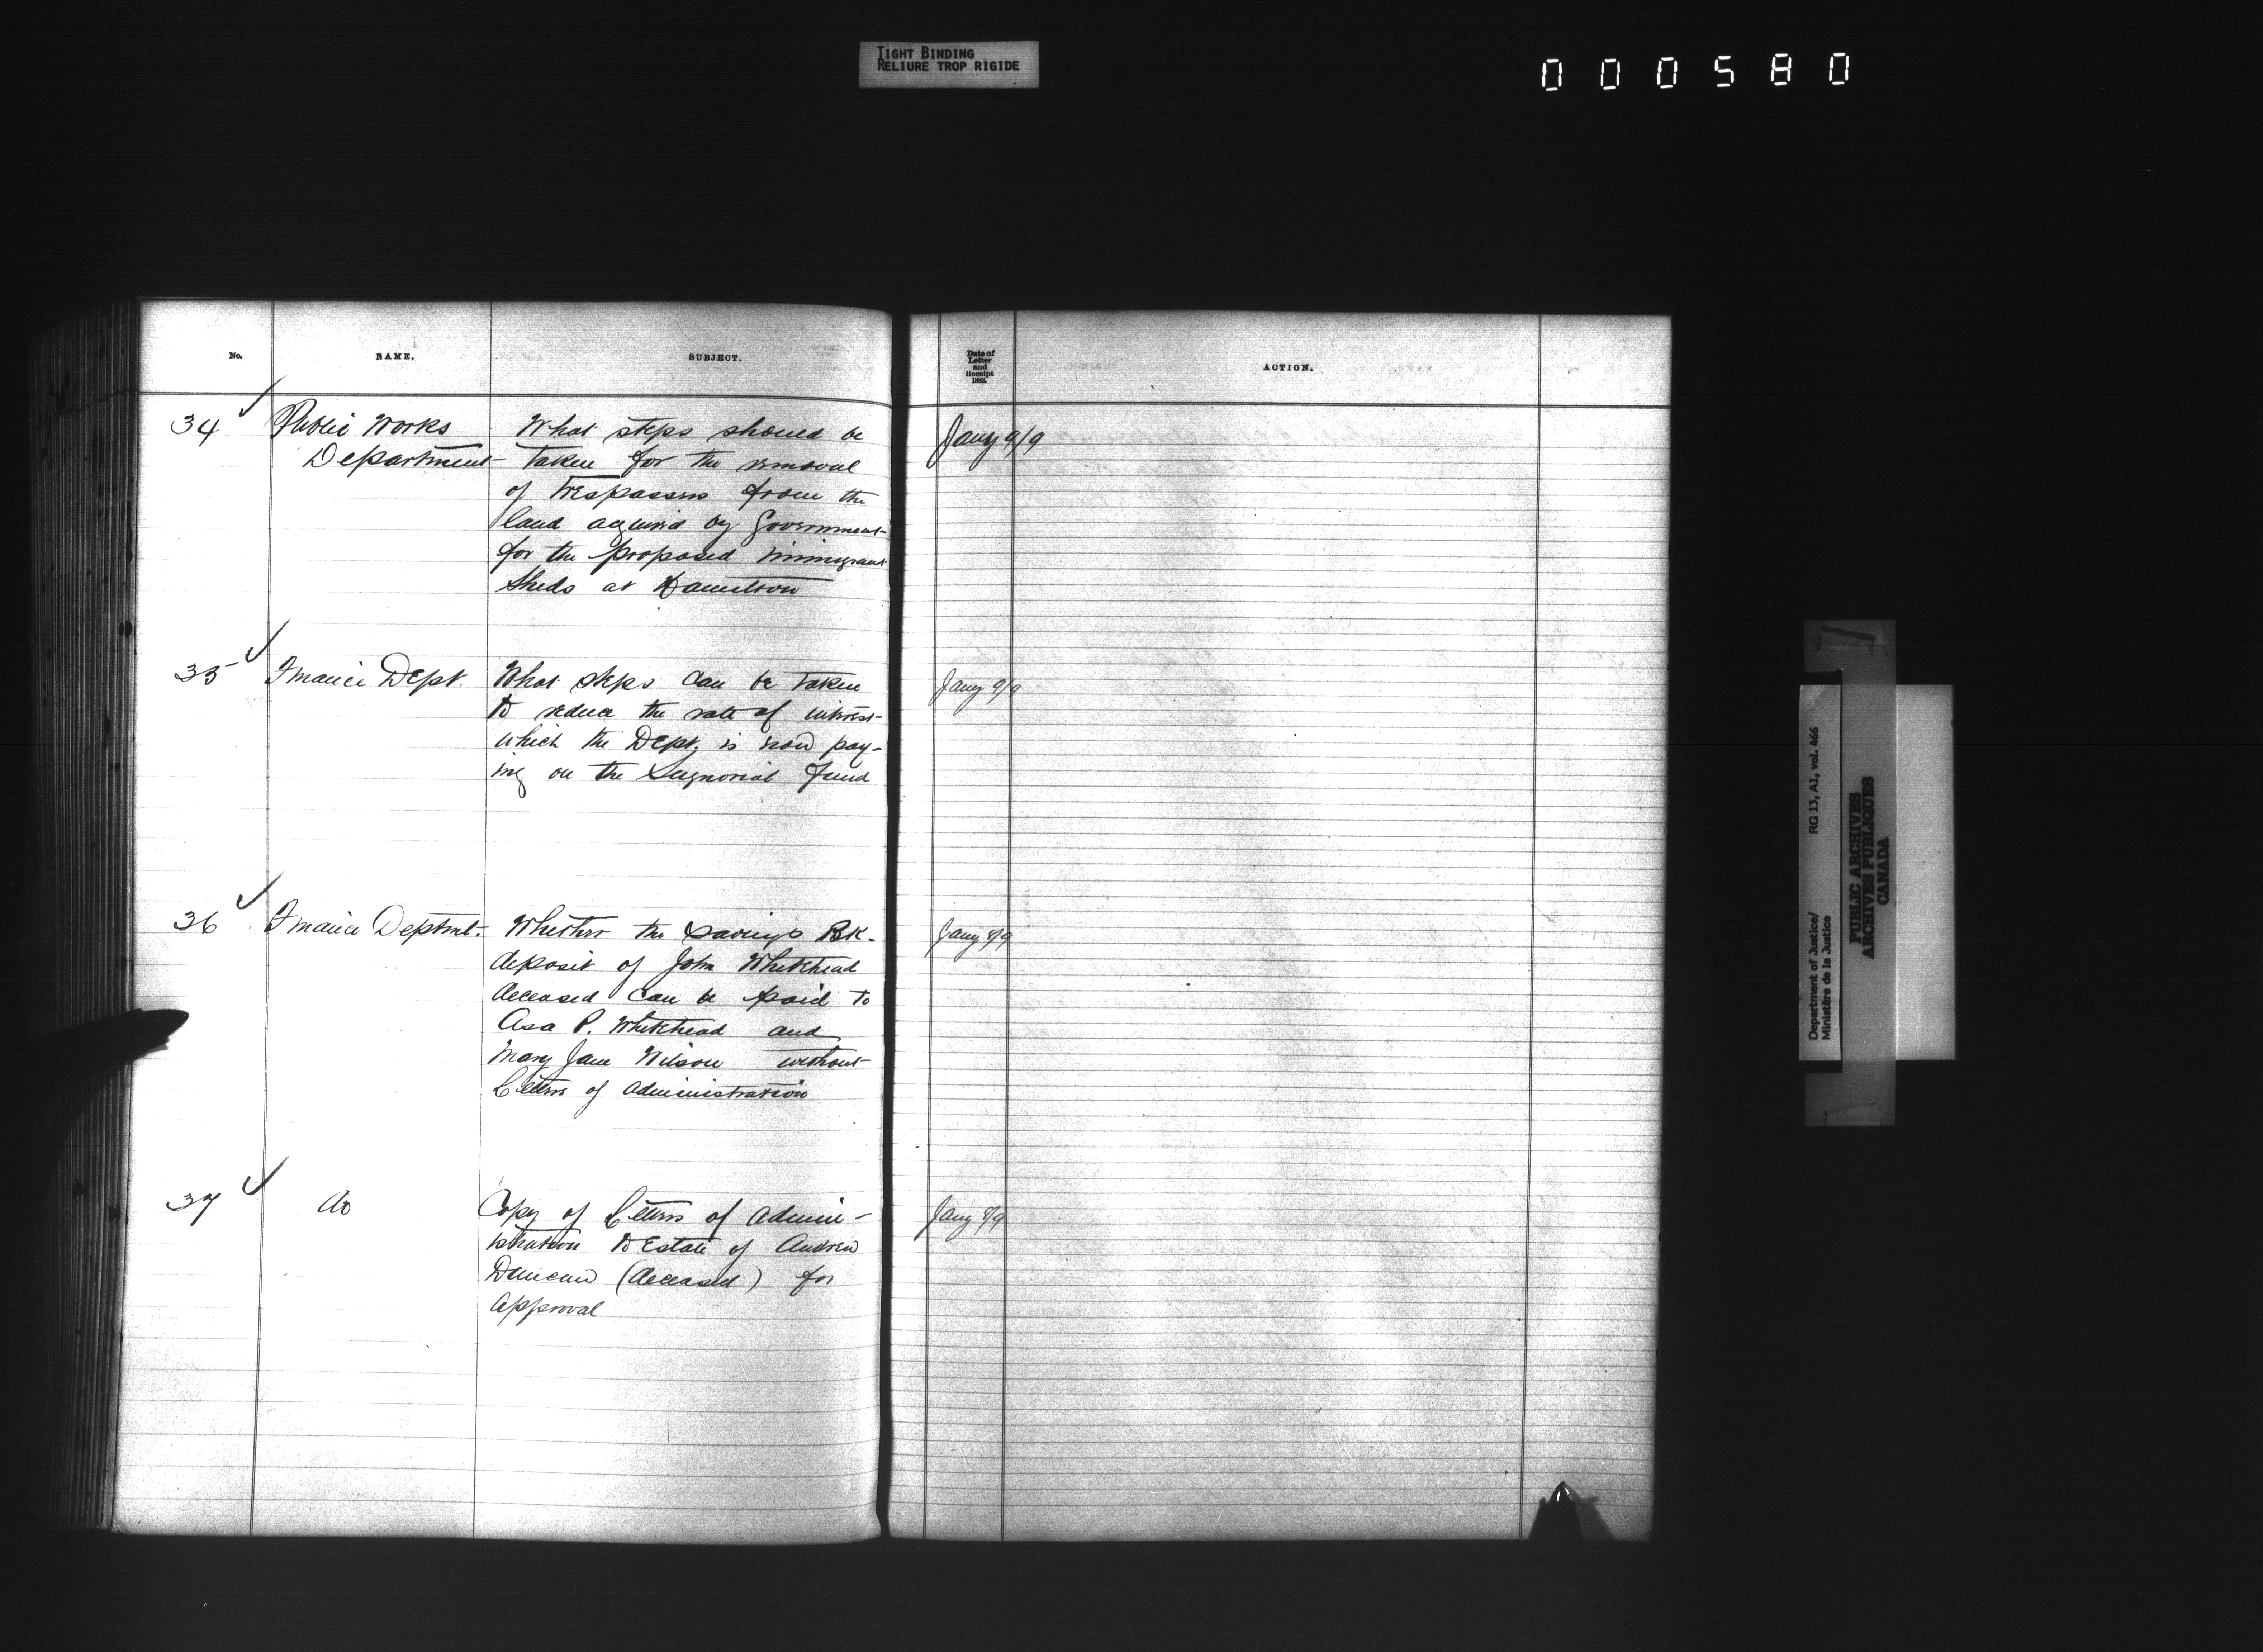 TIGHT BINDING
RELIURE TROP RIGIDE
000580
No. NAME. SUBJECT.
Date of
Letter
and
Receipt
1882.
ACTION.
34 Public Works What steps should be Jany 9/9
Department taken for the removal
of trespassers from the
land acquired by Government
for the proposed immigrant
Sheds at Hamilton
35 Finance Dept. What steps can be taken Jany 9/9
to reduce the rate of interest
which the Dept. is now pay-
ing on the Seignorial fund
36 Finance Deptmt. Whether the Savings Bk. Jany 8/9
deposit of John Whitehead
deceased can be paid to
Asa P. Whitehead and
Mary Jane Wilson without
Letters of administration
37 do Copy of Letters of admin- Jany 8/9
istration to Estate of Andrew
Duncan (deceased) for
approval
Department of Justice/ RG 13, A1, vol. 466
Ministère de la Justice
PUBLIC ARCHIVES
ARCHIVES PUBLIQUES
CANADA